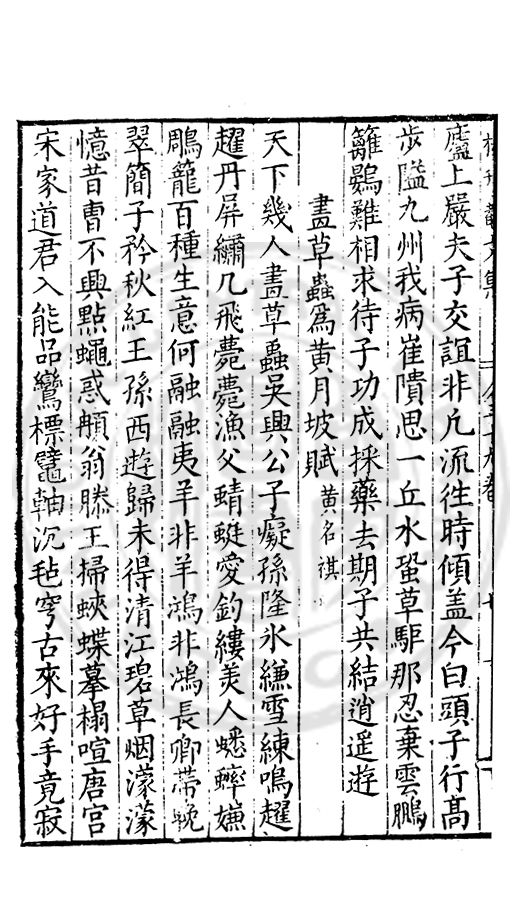 廬上嚴夫子交誼非凡流往時傾盖今白頭子行髙
步隘九州我病崔隤思一丘水蛩草駏那忍棄雲鵬
籬鷃難相求待子功成採藥去期子共結逍遥遊
畫草蟲爲黄月坡賦黄名祺
天下幾人畫草蟲吳興公子癡孫隆氷縑雪練鳴趯
趯丹屏繡几飛薨薨漁父蜻蜓愛釣縷美人蟋蟀嫌
雕籠百種生意何融融夷羊非羊鴻非鴻長卿帶
翠簡子矜秋紅王孫西遊歸未得清江碧草烟濛濛
憶昔曹不興點蠅惑頩翁滕王掃蛺蝶摹榻喧唐宫
宋家道君入能品鸞標鼊軸沉毡穹古來好手竟寂